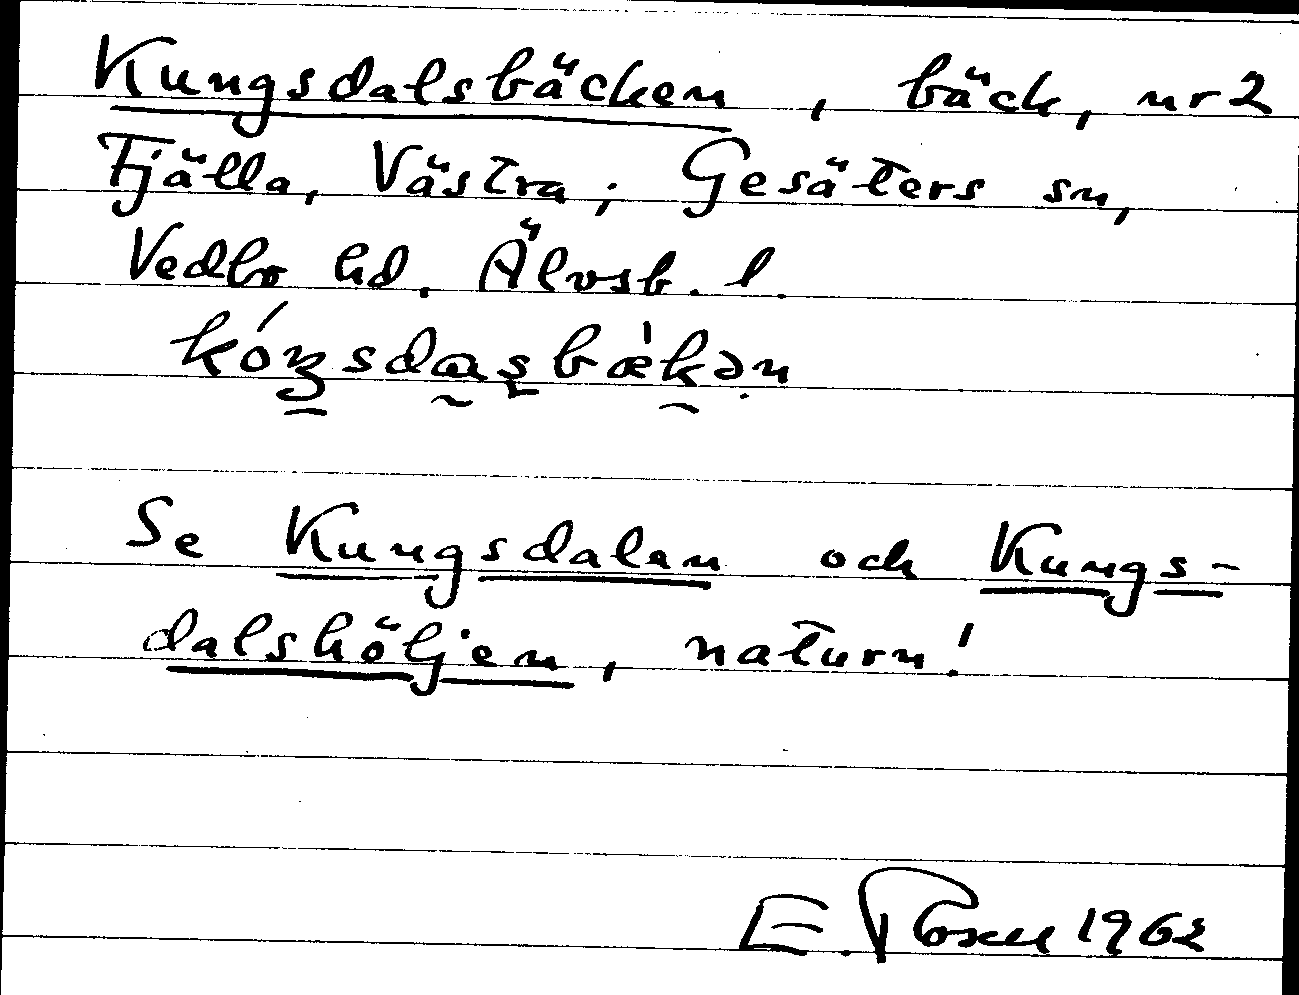 Kungsdalsbäcken, bäck, nr 2
Fjälla, Västra; Gesäters sn,
Vedbo hd. Älvsb. l.
Se Kungsdalen och Kungs-
dalshöljen, naturn!
E. Rosell 1962